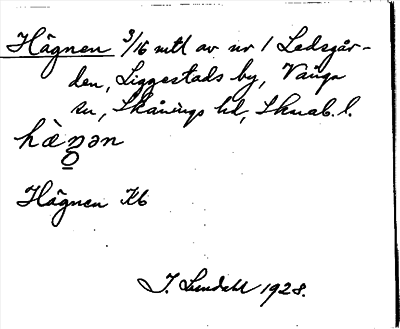 Hägnen 3/16 mtl av nr 1 Ledsgår-
den, Liggestads by, Vånga
sn, Skånings hd, Skarab. l.
hὲn̥ən
Hägnen Kb
J. Lundahl 1928.